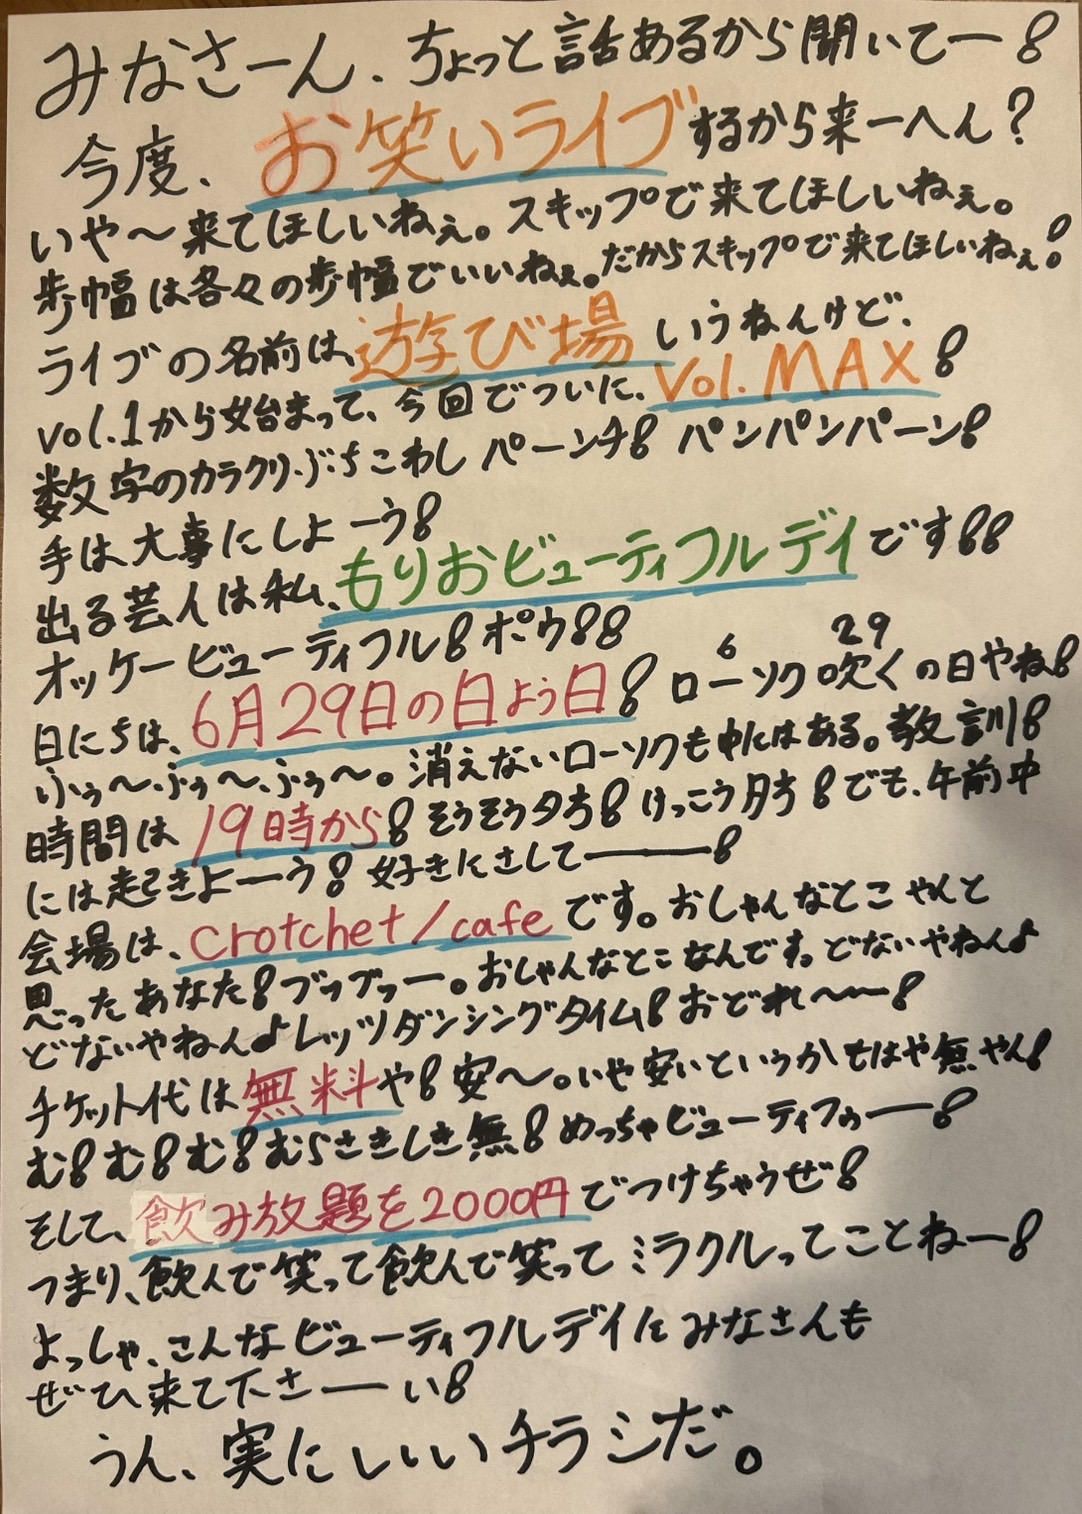 みなさーん、ちょっと話あるから聞いてー!
今度、お笑いライブするから来ーへん?
いや〜来てほしいねぇ。スキップで来てほしいねぇ。
歩幅は各々の歩幅でいいねぇ。だからスキップで来てほしいねぇ!
ライブの名前は、遊び場いうねんけど、
vol.1から始まって、今回でついに、Vol.MAX!
数字のカラクリ、ぶちこわしパーンチ! パンパンパーン!
手は大事にしよーう!
出る芸人は私、もりおビューティフルデイです!!
オッケービューティフル!ポウ!!
6 29
日にちは、6月29日の日よう日! ローソク吹くの日やね!
ふぅ〜、ふぅ〜、ふぅ〜。消えないローソクも中にはある。教訓!
時間は19時から!そうそう夕方!けっこう夕方!でも、午前中
には起きよーう!好きにさしてー!
会場は、crotchet/cafeです。おしゃんなとこやんと
思ったあなた!ブッブッー。おしゃんなとこなんです。どないやねん♪
どないやねん♪レッツダンシングタイム!おどれ〜ー!
チケット代は無料や!安〜。いや安いというかもはや無やん!
む!む!む!むらさきしき無!めっちゃビューティフゥー!
そして、飲み放題を2000円でつけちゃうぜ!
つまり、飲んで笑って飲んで笑ってミラクルってことねー!
よっしゃ、こんなビューティフルデイにみなさんも
ぜひ来て下さーい!
うん、実にしいいチラシだ。